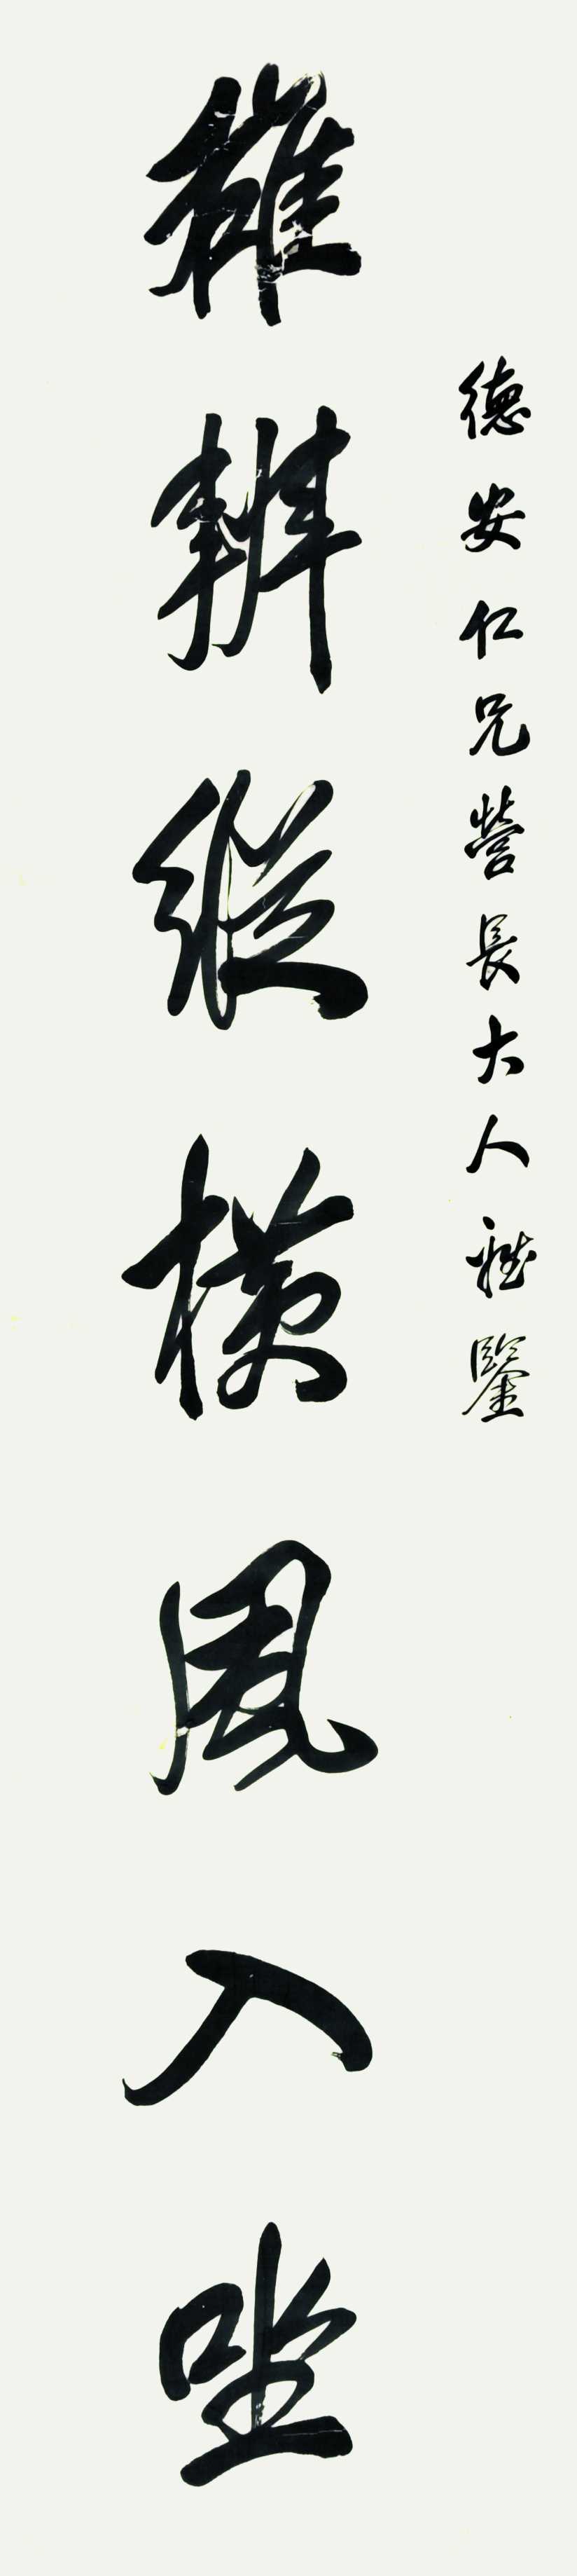 德安仁兄營長大人雅鑒
雄辯縱橫風入坐